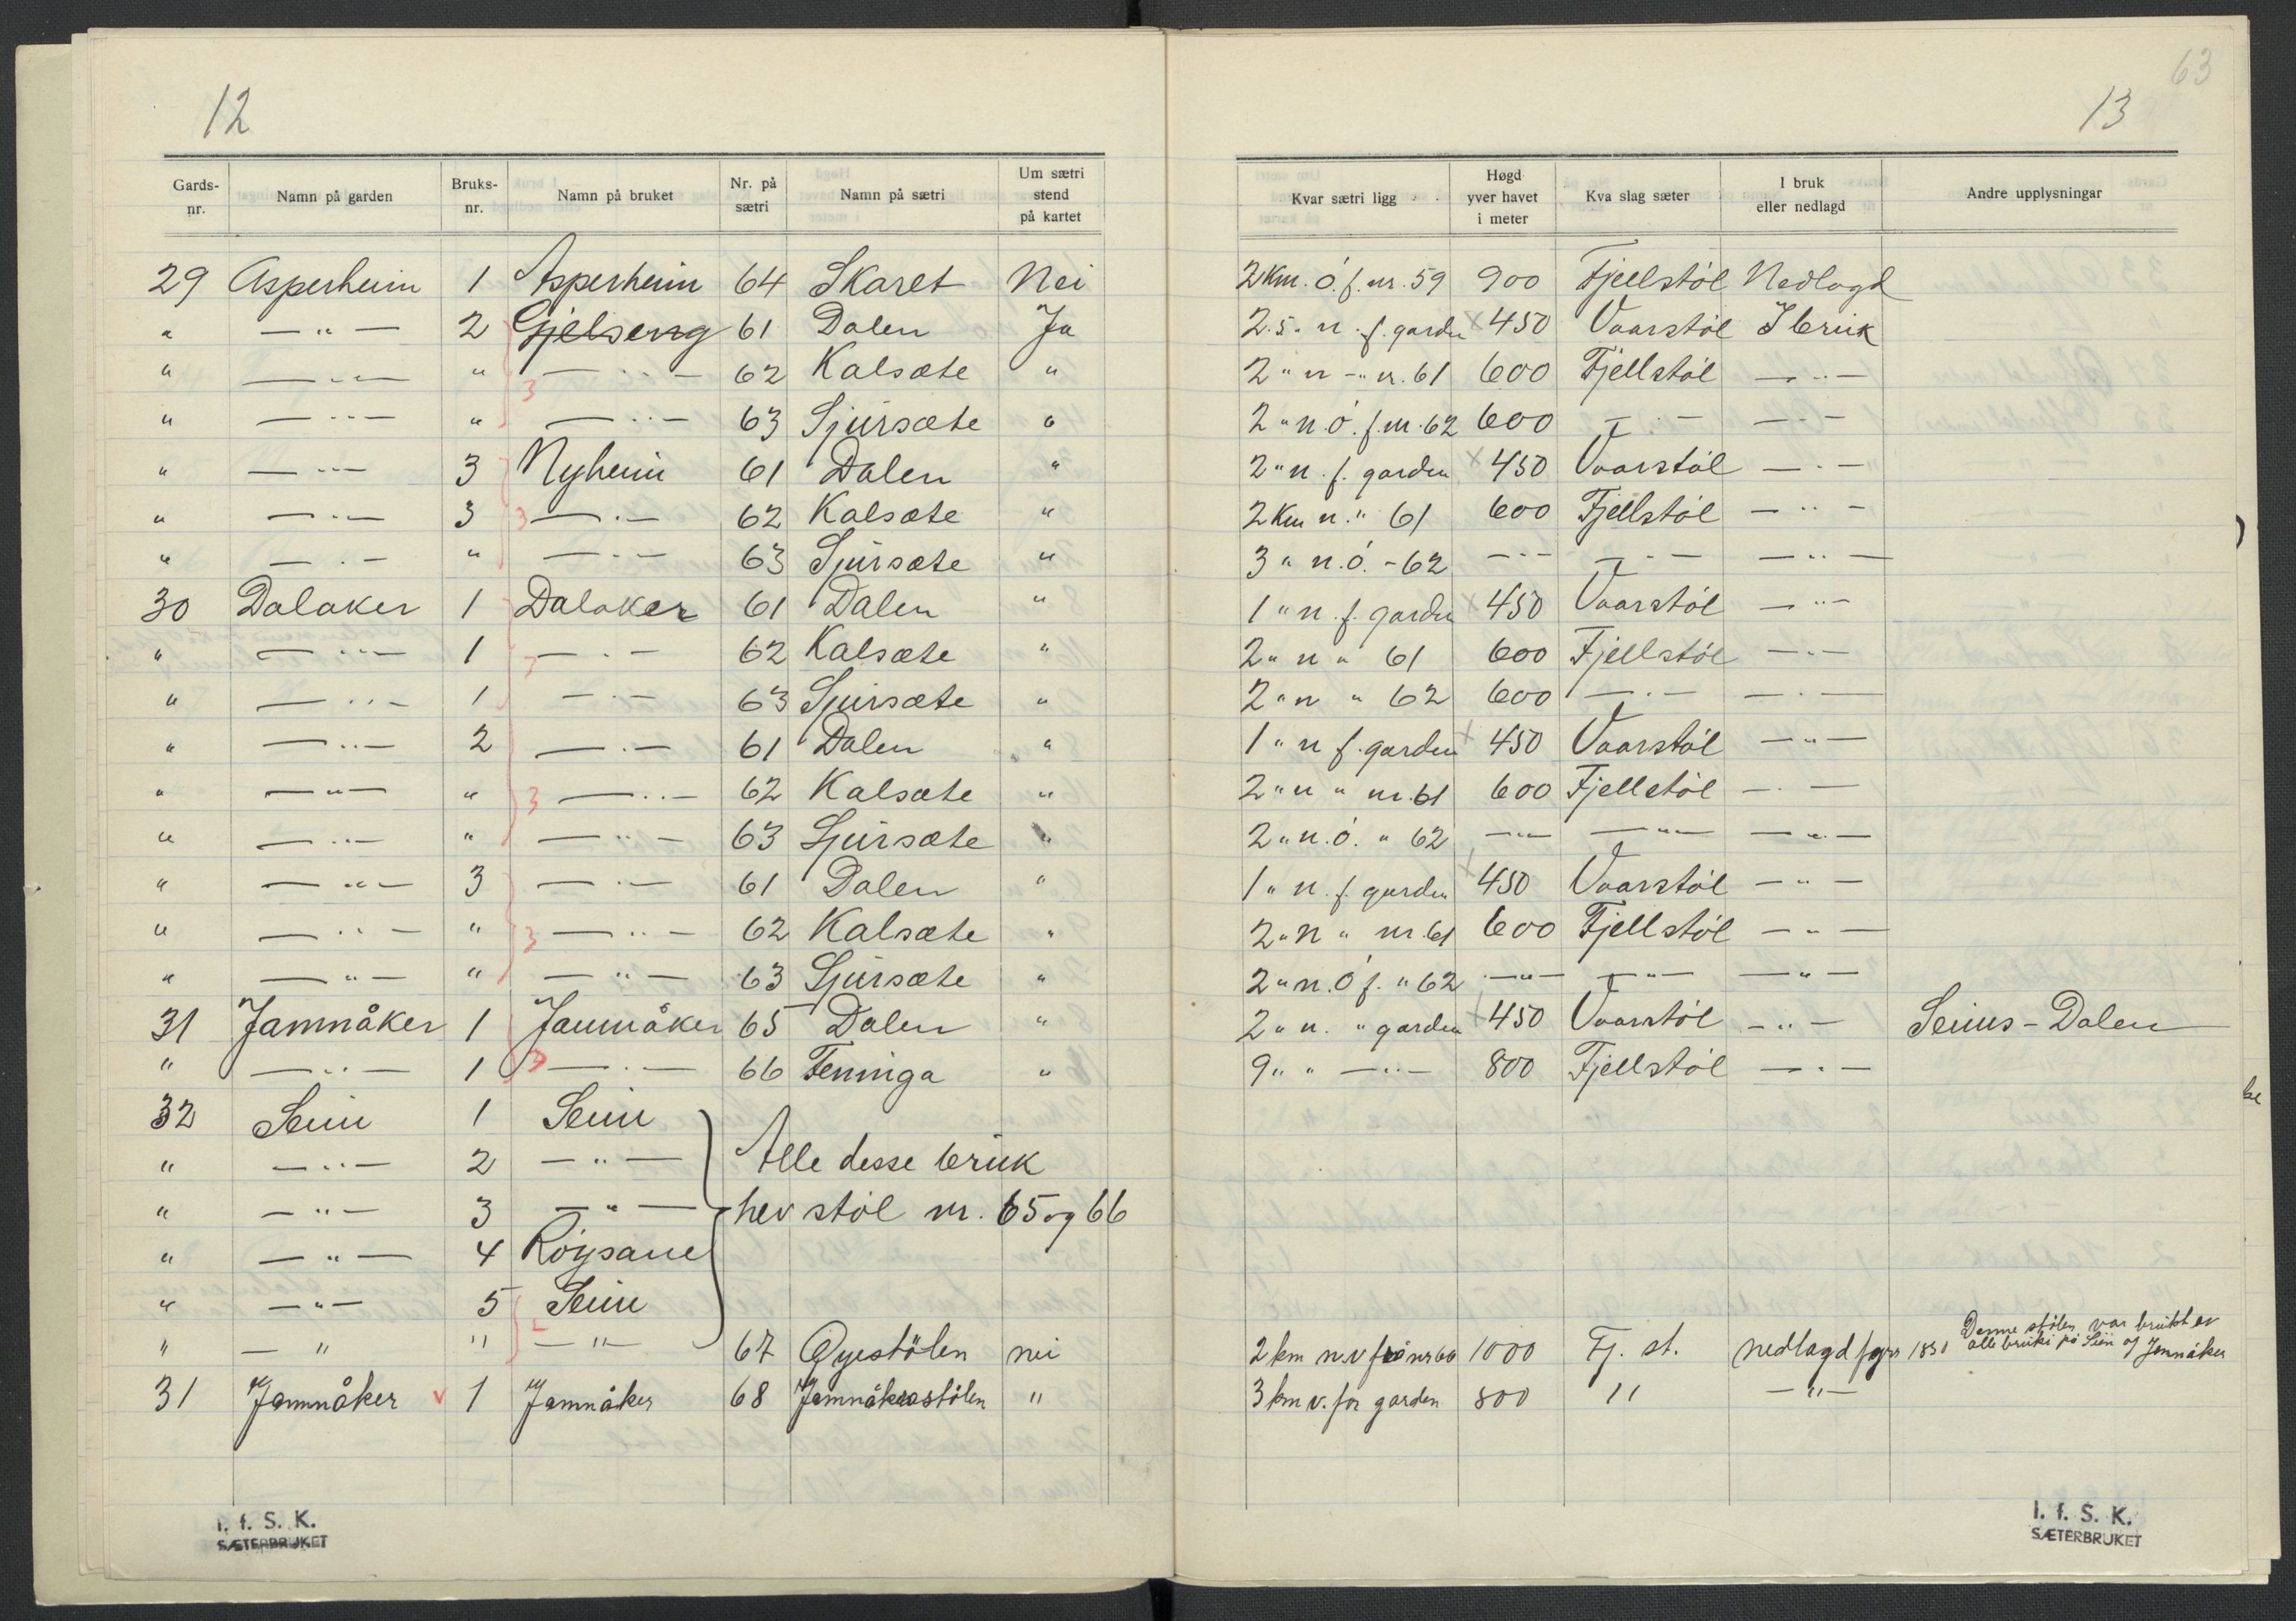 12
Gards-nr. Namn på garden Bruks-nr. Namn på bruket Nr. på sætri Namn på sætri Um sætri stend på kartet
29 Asperheim 1 Asperheim 64 Skaret Nei
" — " — 2 Gjelseng 61 Dalen Ja
" — " — " — " — 62 Kalsæte "
" — " — " — " — 63 Sjursæte "
" — " — 3 Nyheim 61 Dalen "
" — " — 3 — " — 62 Kalsæte "
" — " — " — " — 63 Sjursæte "
30 Dalaker 1 Dalaker 61 Dalen "
" — " — 1 — " — 62 Kalsæte "
" — " — 1 — " — 63 Sjursæte "
" — " — 2 — " — 61 Dalen "
" — " — " — " — 62 Kalsæte "
" — " — " — " — 63 Sjursæte "
" — " — 3 — " — 61 Dalen "
" — " — " — " — 62 Kalsæte "
" — " — " — " — 63 Sjursæte "
31 Jamnåker 1 Jamnåker 65 Dalen "
" — " — 1 — " — 66 Fenninga "
32 Seim 1 Seim
" — " — 2 — " — Alle desse bruk
" — " — 3 — " — hev støl nr. 65 og 66
" — " — 4 Röysane
" — " — 5 Seim
" — " " — " — 67 Öyestölen nei
31 Jamnåker v 1 Jamnåker 68 Jamnåkerstölen "
I. f. S. K.
SÆTERBRUKET
63
13
Kvar sætri ligg Høgd yver havet i meter Kva slag sæter I bruk eller nedlagd Andre upplysningar
2 Km. ó. f. nr. 59 900 Fjellstól Nedlagd
2.5 " n. f. garden x 450 Vaarstól I bruk
2 " n - " nr. 61 600 Fjellstól — " —
2 " n.ó. f. nr. 62 600 — " — — " —
2 " n. f. garden x 450 Vaarstól — " —
2 Km n. " 61 600 Fjellstól — " —
3 " n.ó. - 62 — " — — " — — " —
1 " n. f. garden x 450 Vaarstól — " —
2 " n " 61 600 Fjellstól — " —
2 " n " 62 600 — " — — " —
1 " n f. garden x 450 Vaarstól — " —
2 " n " nr. 61 600 Fjellstól — " —
2 " n.ó. " 62 — " — — " — — " —
1 " n. f. garden x 450 Vaarstól — " —
2 " n " nr. 61 600 Fjellstól — " —
2 " n.ó f. " 62 — " — — " — — " —
2 " n. " garden x 450 Vaarstól — " — Seims-Dalen
9 " " — " — 800 Fjellstól — " —
2 km n.v frå nr 66 1000 Fj. st. nedlagd fyrr 1850 Denne stölen var brukt av alle bruki på Seim og Jamnåker
3 km v. for garden 800 " — " —
I. f. S. K.
SÆTERBRUKET